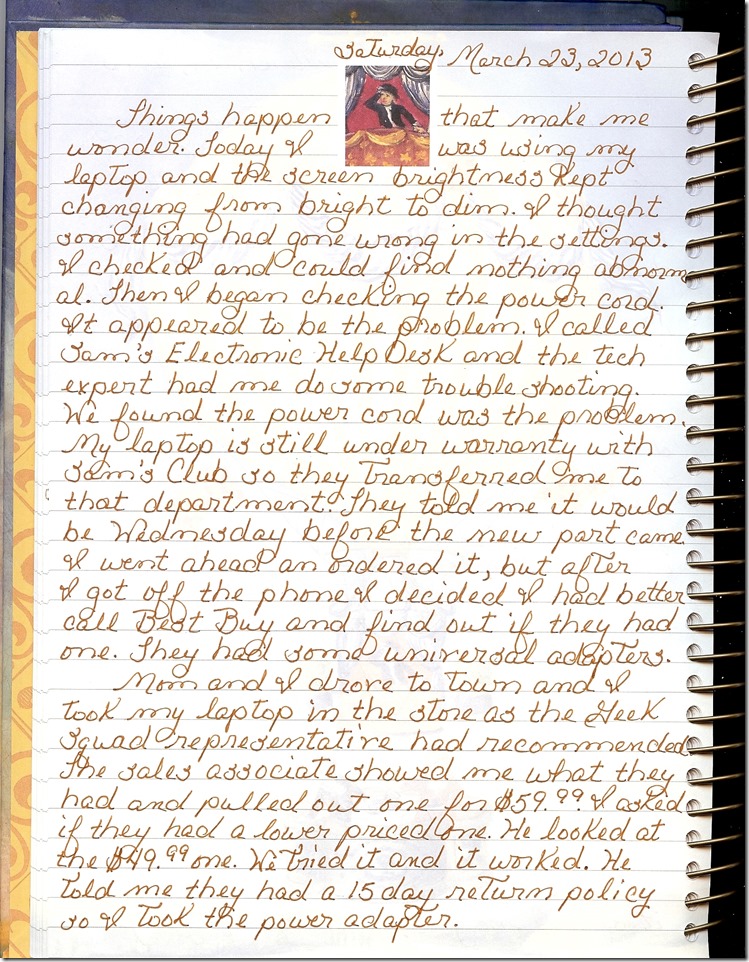 Saturday, March 23, 2013
Things happen that make me
wonder. Today I was using my
laptop and the screen brightness kept
changing from bright to dim. I thought
something had gone wrong in the settings.
I checked and could find nothing abnorm
al. Then I began checking the power cord.
It appeared to be the problem. I called
Sam's Electronic Help Desk and the tech
expert had me do some trouble shooting.
We found the power cord was the problem.
My laptop is still under warranty with
Sam's Club so they transferred me to
that department. They told me it would
be Wednesday before the new part came.
I went ahead an ordered it, but after
I got off the phone I decided I had better
call Best Buy and find out if they had
one. They had some universal adapters.
Mom and I drove to town and I
took my laptop in the store as the Geek
Squad representative had recommended.
The sales associate showed me what they
had and pulled out one for $59.99. I asked
if they had a lower priced one. He looked at
the $49.99 one. We tried it and it worked. He
told me they had a 15 day return policy
so I took the power adapter.